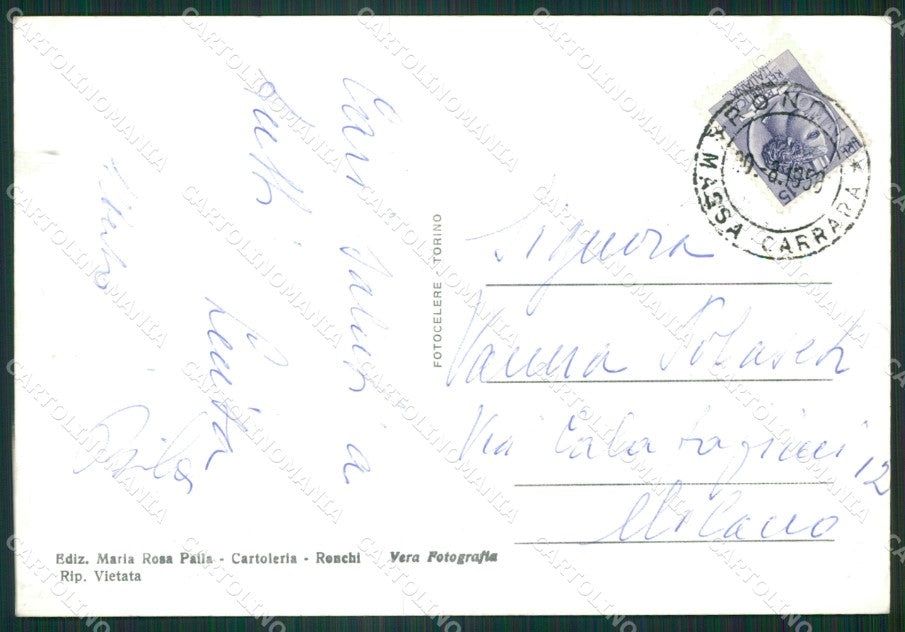 Cari saluti a
tutti
FOTOCELERE TORINO
RONCHI
MASSA CARRARA
ITALIANA
LIRE
15
Signora
Vanna
Via Calatafimi 12
Milano
Ediz. Maria Rosa Palla - Cartoleria - Ronchi Vera Fotografia
Rip. Vietata
CARTOLINOMANIA